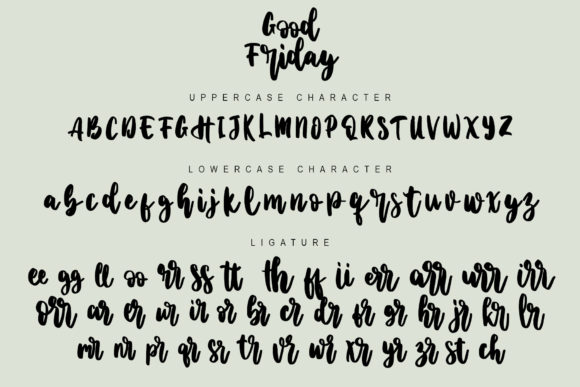 Good
Friday
UPPERCASE CHARACTER
ABCDEFGHIJKLMNOPQRSTUVWXYZ
LOWERCASE CHARACTER
abcdefghijklmnopqrstuvwxyz
LIGATURE
ee gg ll oo rr ss tt th ff ii err arr urr irr
orr ar er ur ir or br cr dr fr gr hr jr kr lr
mr nr pr qr sr tr vr wr xr yr zr st ch